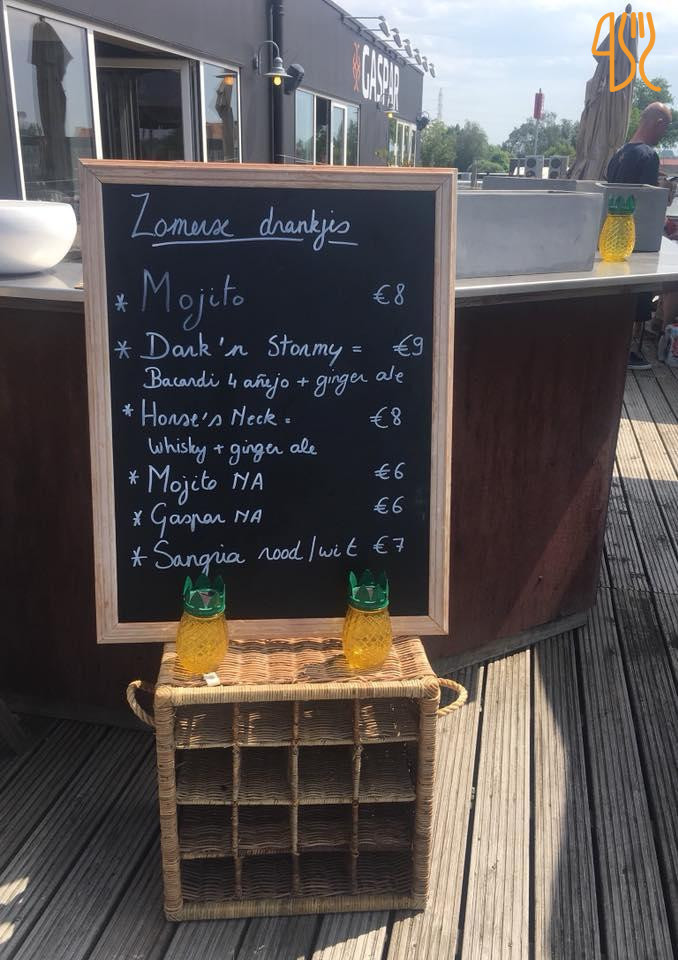 GASPAR
Zomerse drankjes
* Mojito €8
* Dark'n Stormy = €9
Bacardi 4 añejo + ginger ale
* Horse's Neck = €8
Whisky + ginger ale
* Mojito NA €6
* Gaspar NA €6
* Sangria rood/wit €7